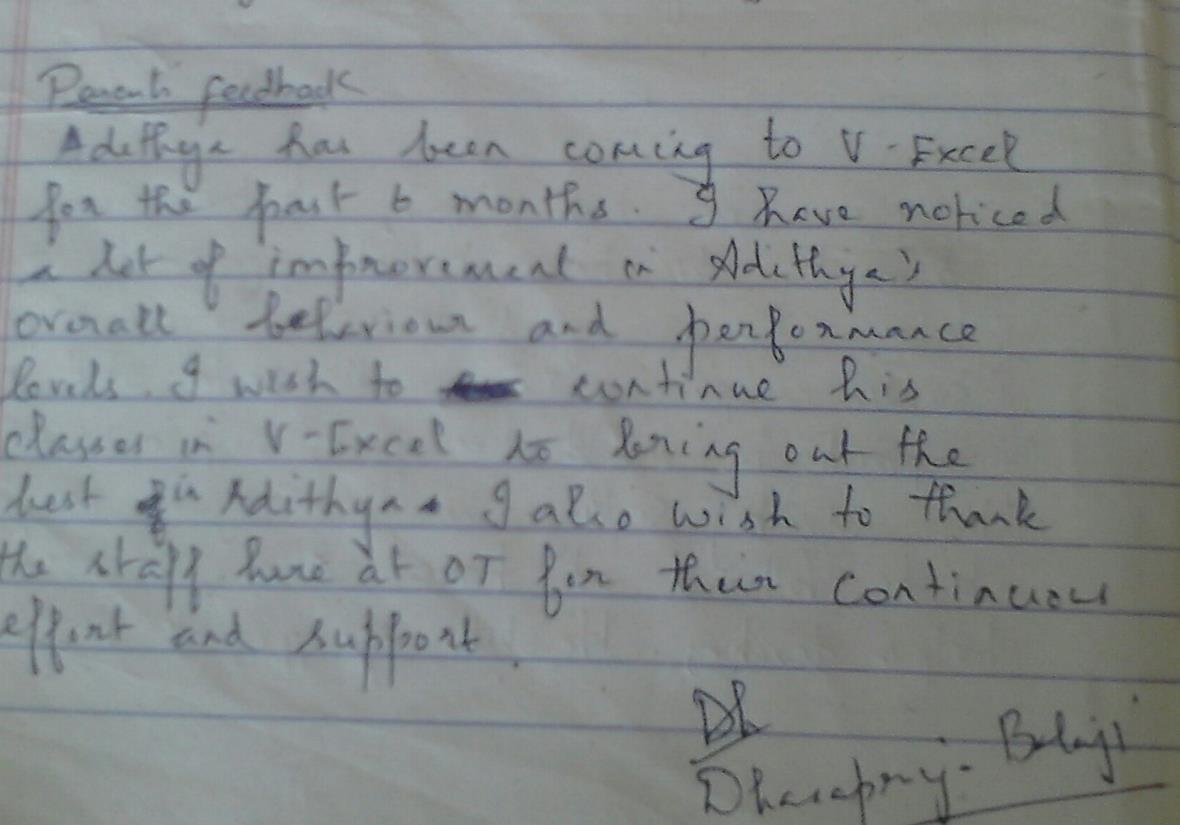 Parents feedback
Adithya has been coming to V-Excel
for the past 6 months. I have noticed
a lot of improvement in Adithya's
overall behaviour and performance
levels. I wish to continue his
classes in V-Excel to bring out the
best in Adithya. I also wish to thank
the staff here at OT for their continuous
effort and support.
Balaji